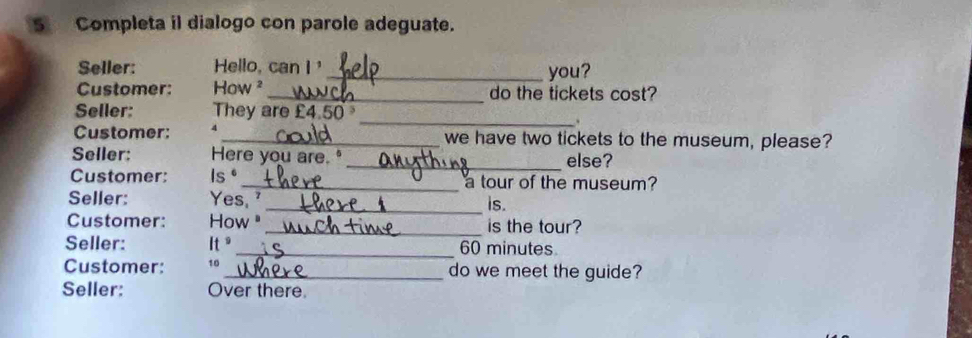 5 Completa il dialogo con parole adeguate.
Seller: Hello, can I ¹ help you?
Customer: How ² much do the tickets cost?
Seller: They are £4.50 ³ ____.
Customer: ⁴ could we have two tickets to the museum, please?
Seller: Here you are. ⁵ anything else?
Customer: Is ⁶ there a tour of the museum?
Seller: Yes, ⁷ there is.
Customer: How ⁸ much time is the tour?
Seller: It ⁹ is 60 minutes.
Customer: ¹⁰ where do we meet the guide?
Seller: Over there.